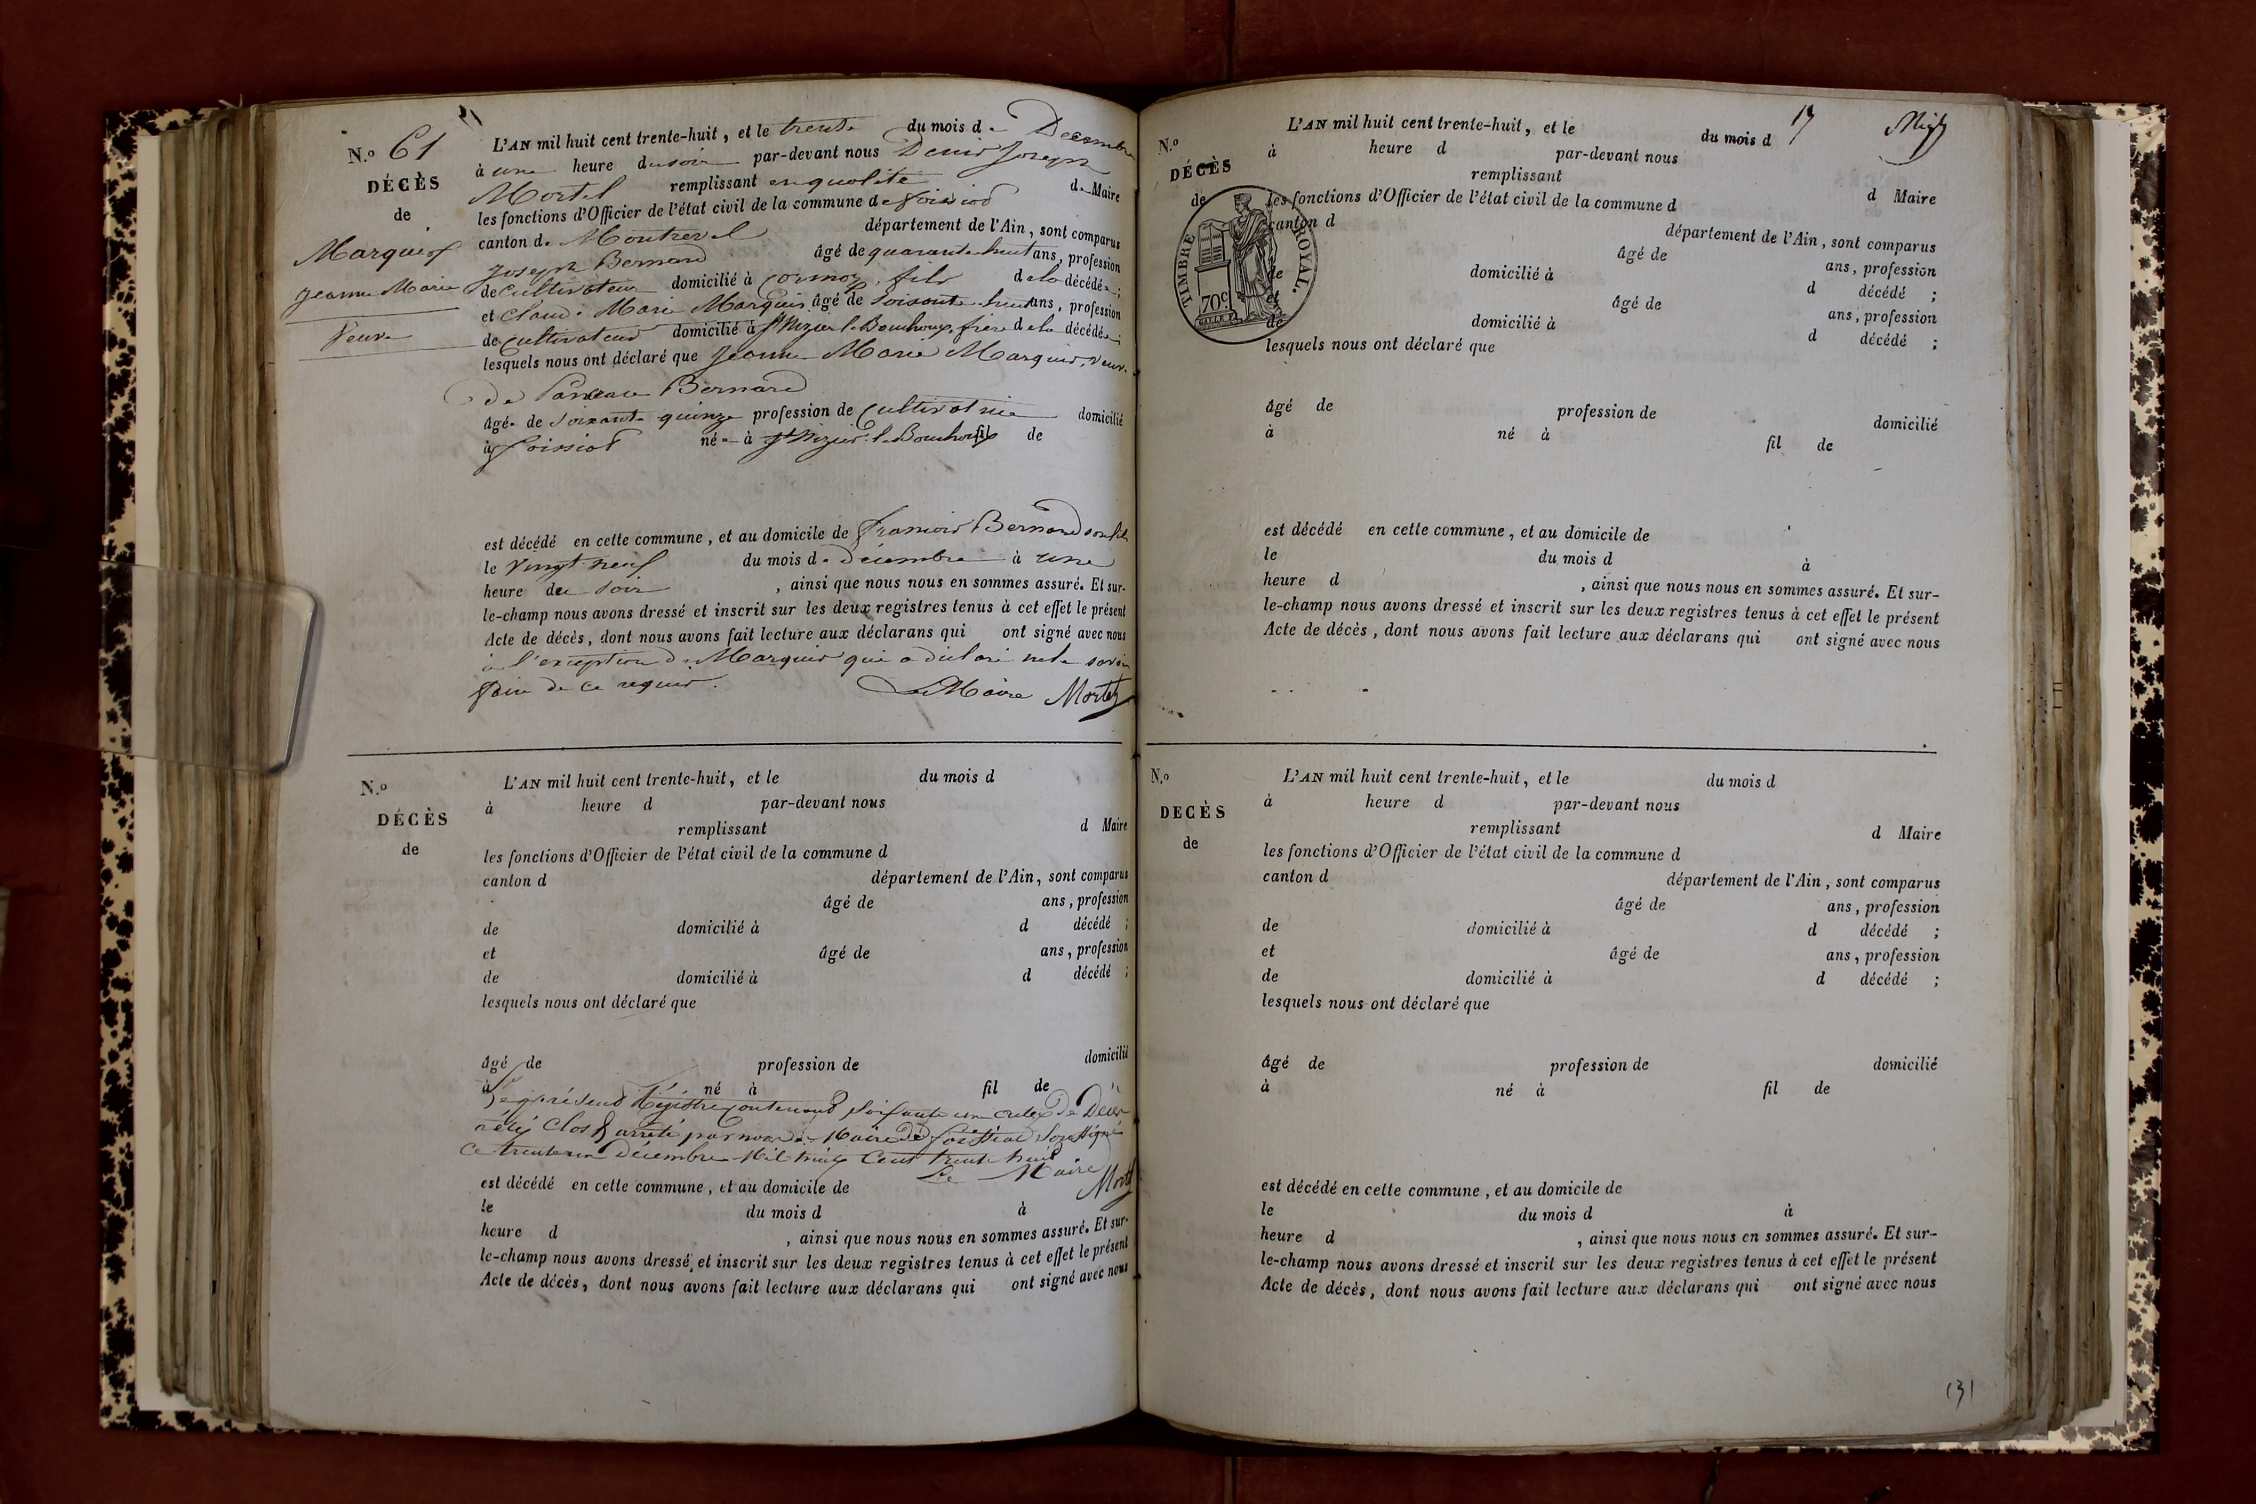 N.º 61
DÉCÈS
de
Marquis
Jeanne Marie
Veuve
L'AN mil huit cent trente-huit, et le trente du mois de Décembre
à une heure du soir par-devant nous Denis Joseph
Mortel remplissant en qualité de Maire
les fonctions d'Officier de l'état civil de la commune de foissiat
canton de Montrevel département de l'Ain, sont comparus
Joseph Bernard âgé de quarante huit ans, profession
de Cultivateur domicilié à Cormoz, fils de la décédée;
et Claude Marie Marquis âgé de soixante huit ans, profession
de Cultivateur domicilié à St Nizier le Bouchoux, frère de la décédée;
lesquels nous ont déclaré que Jeanne Marie Marquis, veuve
de Bernard
âgée de soixante quinze profession de Cultivatrice domicilié
à foissiat née à St Nizier le Bouchoux fil de
est décédé en cette commune, et au domicile de francois Bernard son fils
le vingt neuf du mois de décembre à une
heure du soir, ainsi que nous nous en sommes assuré. Et sur-
le-champ nous avons dressé et inscrit sur les deux registres tenus à cet effet le présent
Acte de décès, dont nous avons fait lecture aux déclarans qui ont signé avec nous
à l'exception de Marquis qui a déclaré ne le savoir
faire de ce requis. Le Maire Mortel
N.º
DÉCÈS
de
L'AN mil huit cent trente-huit, et le du mois d
à heure d par-devant nous
remplissant d Maire
les fonctions d'Officier de l'état civil de la commune d
canton d département de l'Ain, sont comparus
âgé de ans, profession
de domicilié à d décédé ;
et âgé de ans, profession
de domicilié à d décédé ;
lesquels nous ont déclaré que
âgé de profession de domicilié
à né à fil de
Le présent Régistre contenant soixante un actes de Décès
a été Clos & arrêté par nous Maire de foissiat Soussigné
Ce trente un décembre Mil huit Cent trente huit
Le Maire Mortel
est décédé en cette commune, et au domicile de
le du mois d à
heure d , ainsi que nous nous en sommes assuré. Et sur-
le-champ nous avons dressé et inscrit sur les deux registres tenus à cet effet le présent
Acte de décès, dont nous avons fait lecture aux déclarans qui ont signé avec nous
17
N.º
DÉCÈS
de
TIMBRE ROYAL.
70c
L'AN mil huit cent trente-huit, et le du mois d
à heure d par-devant nous
remplissant d Maire
les fonctions d'Officier de l'état civil de la commune d
canton d département de l'Ain, sont comparus
âgé de ans, profession
de domicilié à d décédé ;
et âgé de ans, profession
de domicilié à d décédé ;
lesquels nous ont déclaré que
âgé de profession de domicilié
à né à fil de
est décédé en cette commune, et au domicile de
le du mois d à
heure d , ainsi que nous nous en sommes assuré. Et sur-
le-champ nous avons dressé et inscrit sur les deux registres tenus à cet effet le présent
Acte de décès, dont nous avons fait lecture aux déclarans qui ont signé avec nous
N.º
DECÈS
de
L'AN mil huit cent trente-huit, et le du mois d
à heure d par-devant nous
remplissant d Maire
les fonctions d'Officier de l'état civil de la commune d
canton d département de l'Ain, sont comparus
âgé de ans, profession
de domicilié à d décédé ;
et âgé de ans, profession
de domicilié à d décédé ;
lesquels nous ont déclaré que
âgé de profession de domicilié
à né à fil de
est décédé en cette commune, et au domicile de
le du mois d à
heure d , ainsi que nous nous en sommes assuré. Et sur-
le-champ nous avons dressé et inscrit sur les deux registres tenus à cet effet le présent
Acte de décès, dont nous avons fait lecture aux déclarans qui ont signé avec nous
131